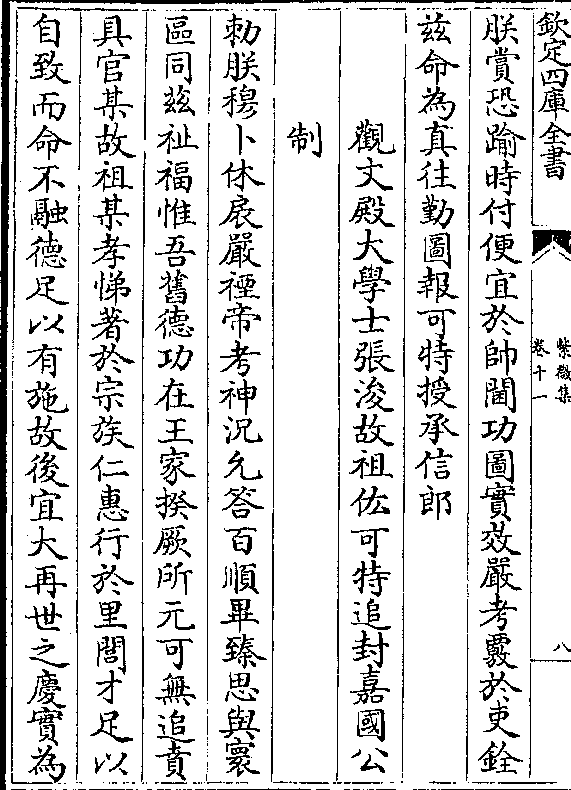 欽定四庫全書
紫微集
卷十一
八
朕賞恐踰時付便宜於帥閫功圖實效嚴考覈於吏銓
兹命為真往勤圖報可特授承信郎
觀文殿大學士張浚故祖佐可特追封嘉國公
制
勅朕穆卜休辰嚴禋帝考神況允答百順畢臻思與寰
區同兹祉福惟吾舊德功在王家揆厥所元可無追賁
具官某故祖某孝悌著於宗族仁惠行於里閭才足以
自致而命不融德足以有施故後宜大再世之慶實為